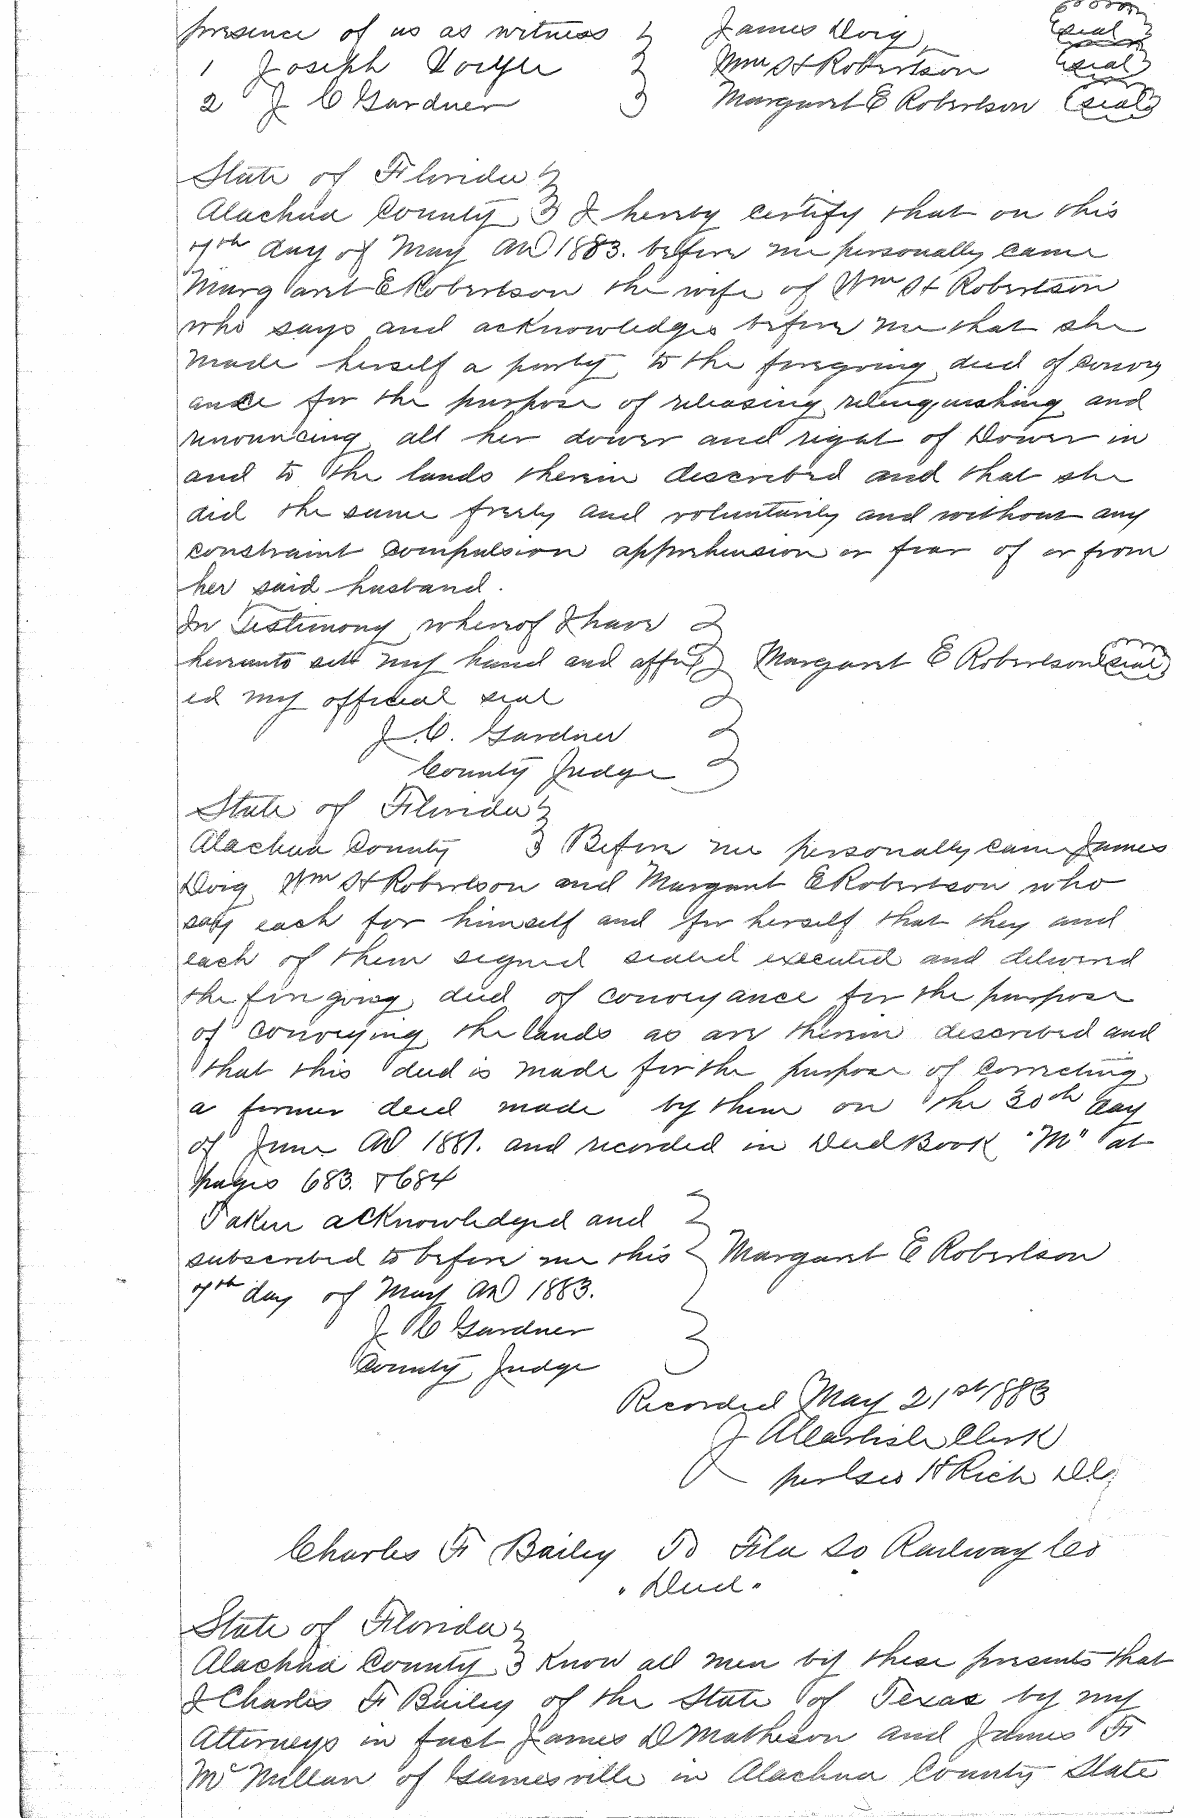 presence of us as witness James Doig (seal)
1 Joseph Voyle Wm H Robertson (seal)
2 J C Gardner Margaret E Robertson (seal)
State of Florida
Alachua County I hereby certify that on this
7th day of May AD 1883. before me personally came
Margaret E Robertson the wife of Wm H Robertson
who says and acknowledges before me that she
made herself a party to the foregoing deed of convey
ance for the purpose of releasing relinquishing and
renouncing all her dower and right of Dower in
and to the lands therein described and that she
did the same freely and voluntarily and without any
constraint compulsion apprehension or fear of or from
her said husband.
In Testimony whereof I have
hereunto set my hand and affix Margaret E Robertson (seal)
ed my official seal
J. C. Gardner
County Judge
State of Florida
Alachua County Before me personally came James
Doig Wm H Robertson and Margaret E Robertson who
say each for himself and for herself that they and
each of them signed sealed executed and delivered
the foregoing deed of conveyance for the purpose
of conveying the lands as are therein described and
that this deed is made for the purpose of correcting
a former deed made by them on the 30th day
of June AD 1881. and recorded in Deed Book "M" at
pages 683. & 684
Taken acknowledged and
subscribed to before me this Margaret E Robertson
7th day of May AD 1883.
J C Gardner
County Judge
Recorded May 21st 1883
J A Carlisle Clerk
per H Rich D.C.
Charles F Bailey To Fla So Railway Co
"Deed"
State of Florida
Alachua County Know all men by these presents that
I Charles F Bailey of the State of Texas by my
Attorneys in fact James D Matheson and James F
McMillan of Gainesville in Alachua County State